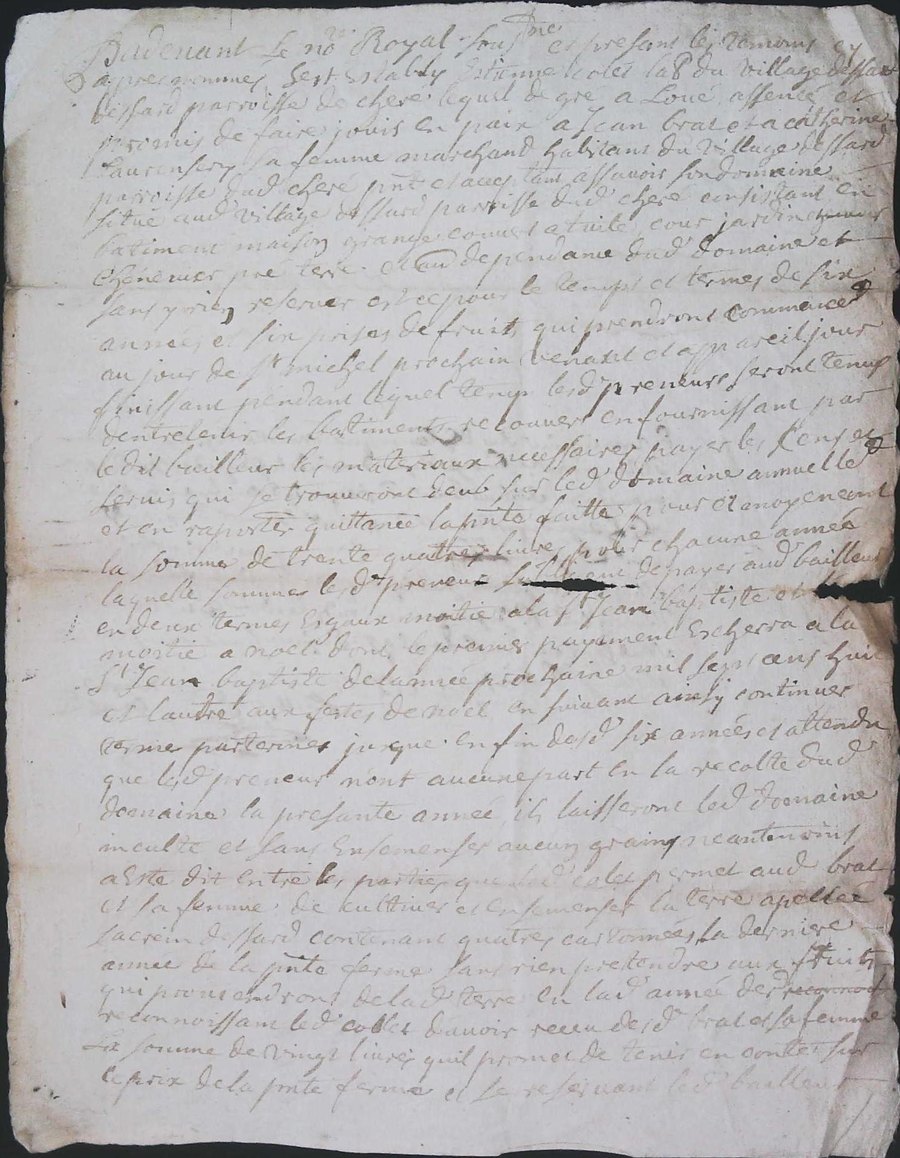 Pardevant Le no.re Royal sous.né et presant les temoins cy
apres nommes, sest establi Estienne colet lab.r du village dessard
parroisse de chere lequel de gre a Loué assencé et
promis de faire jouir en paix a Jean brat et a catherine
sa femme marchand habitans du village dessard
parroisse dud chere pnt et aceptant assavoir son domaine
situé aud village dessard parroisse dud chere consistant en
batiment maison grange couvert a tuile, cour jardin
chenevier pré terre et dependance dud domaine et
sans y rien reserver est ce pour le temps et termes de six
années et six prises de fruits qui prendront commencé
au jour de st michel prochain venant et a pareil jour
finissant pendant lequel temps lesd preneurs seront tenus
dentretenir les batiments recouvers en fournissant par
ledit bailleur les materiaux necessaires payer les Cens et
servis qui se trouveront deub sur led domaine annuelle
et en raporter quittance la pnte faitte pour et moyenant
la somme de trente quatres livres pour chacune année
laquelle somme lesd preneur de payer aud bailleur
en deux termes Esgaux moitie a la st Jean baptiste et
moitié a noel dont le premier payement Escherra a la
st Jean baptiste de lannée prochaine mil sept cens huit
et lautre aux festes de noel en suivant ainsy continuer
terme par terme jusque en fin desd six années et attendu
que lesd preneur nont aucune part en la recolte dud
domaine la presante année, ils laisseront led domaine
inculte et sans Ensemenser aucun grains neantmoins
a Esté dit entre les parties que led colet permet aud brat
et sa femme de cultiver et ensemenser la terre apellée
dessard contenant quatres cartonnées la derniere
année de la pnte ferme sans rien pretendre aux fruits
qui proviendront de lad terre en lad année
reconnoissant led colet davoir receu desd brat et sa femme
La somme de vingt livres quil promet de tenir en conter sur
le prix de la pnte ferme et se reservant led bailleur